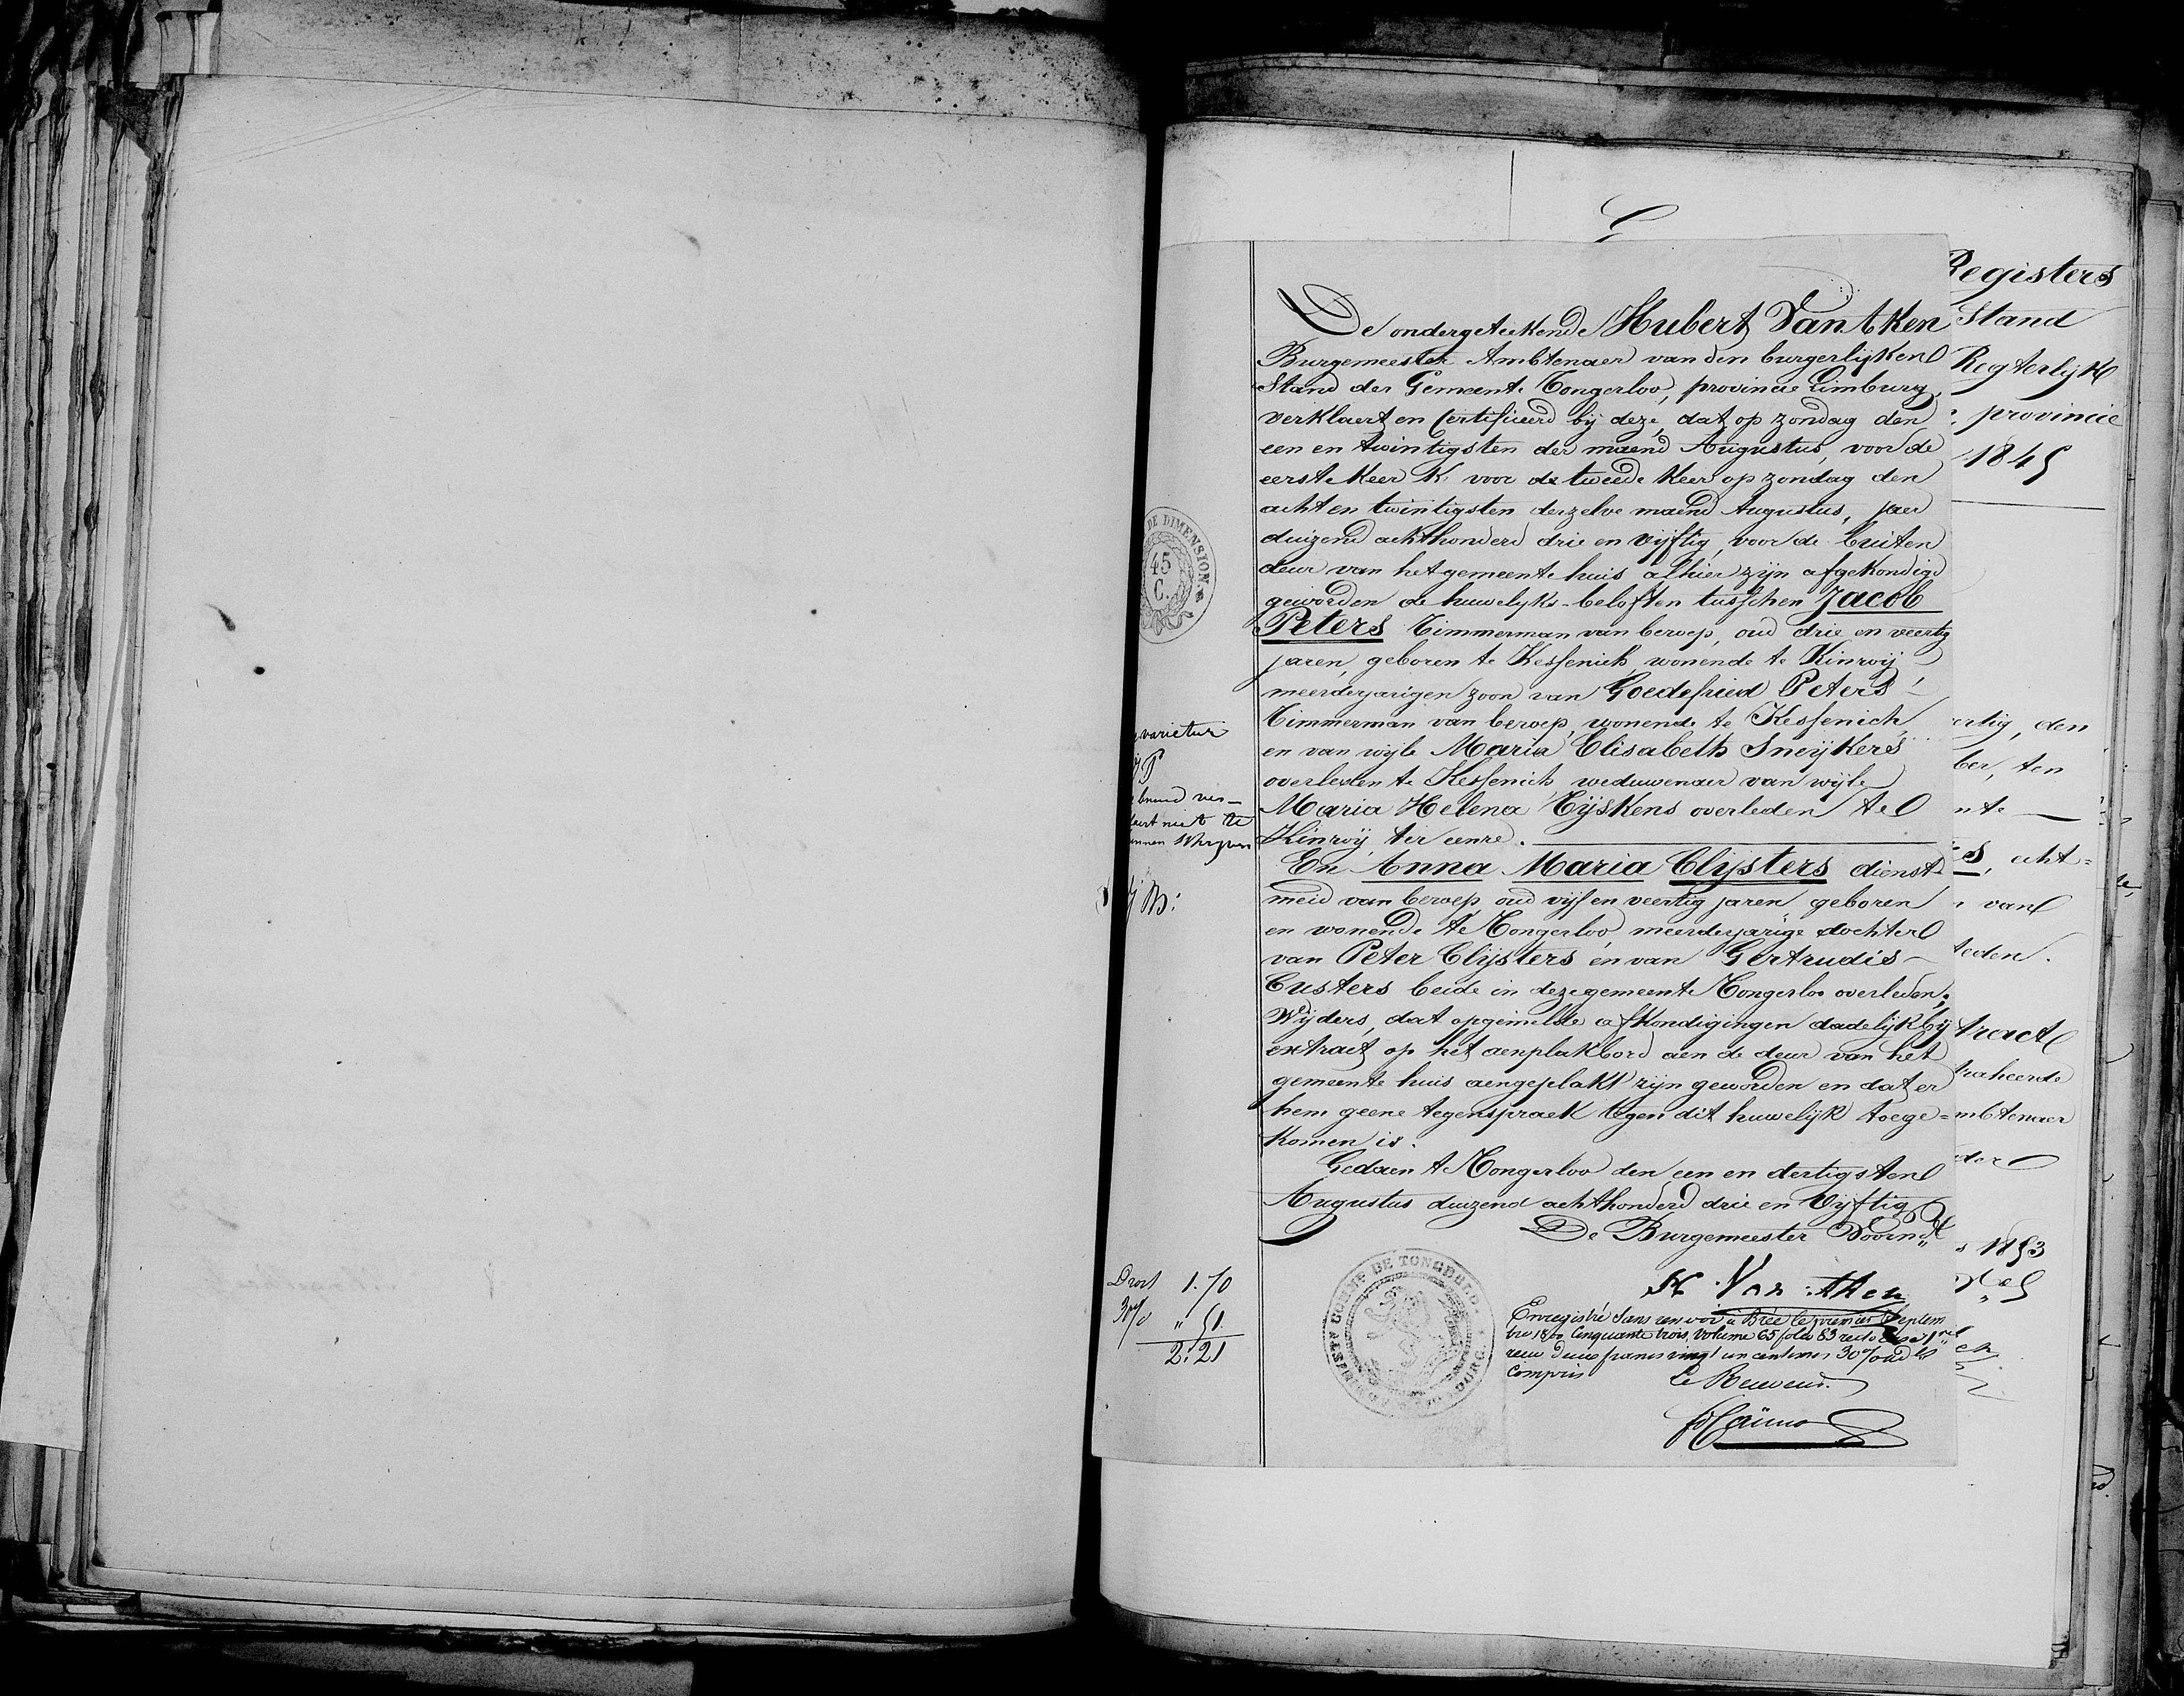 De ondergeteekende Hubert Van Aken
Burgemeester Ambtenaer van den burgerlijken
Stand der Gemeente Tongerloo, provincie Limburg,
verklaert en Certifieerd bij deze, dat op zondag den
een en twintigsten der maend Augustus, voor de
eerste keer & voor de tweede keer op zondag den
acht en twintigsten derzelve maend Augustus, jaer
duizend achthonderd drie en vijftig, voor de buiten
deur van het gemeente huis alhier zijn afgekondigd
geworden de huwelyks-beloften tusschen Jacob
Peters Timmerman van beroep, oud drie en veertig
jaren, geboren te Kessenich wonende te Kinroij
meerderjarigen zoon van Goedefried Peters
Timmerman van beroep, wonende te Kessenich,
en van wyle Maria Elisabeth Sneijkers
overleden te Kessenich, weduwenaer van wijle
Maria Helena Tijskens overleden te
Kinroij, ter eenre.
En Anna Maria Clijsters dienst
meid van beroep oud vijf en veertig jaren geboren
en wonende te Tongerloo, meerderjarige dochter
van Peter Clijsters en van Gertrudis
Custers beide in deze gemeente Tongerloo overleden;
Wijders, dat opgemelde afkondigingen dadelijk bij
extract op het aenplakbord aen de deur van het
gemeente huis aengeplakt zijn geworden en dat er
hem geene tegenspraek tegen dit huwelijk toege=
komen is.
Gedaen te Tongerloo den een en dertigsten
Augustus duizend achthonderd drie en Vijftig
De Burgemeester Voornd
H Van Aken
Enregistré sans renvoi à Brée le premier Septem
bre 18 Cinquante trois, volume 65 folio 83 recto
recu deux francs vingt un centimes 30 %
Compris
Le Receveur
DE DIMENSION.
45
C.
varietur
Droit 1.70
30 % " 51.
2.21
COMME DE TONGERLO.
Registers
Stand
Regterlijk
provincie
1845
ertig, den
ber, ten
nte
s, acht=
van
leden.
tract
traheerde
mbtenaer
der
1853